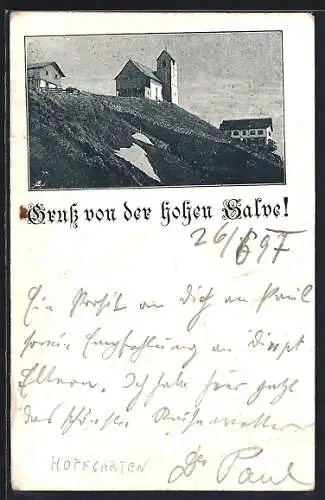 Gruß von der hohen Salve!
26/6 97
Ein Prosit an Dich an Paul
sowie Empfehlung an
Eltern. Ich habe hier
das Reisewetter
Dr Paul
HOPFGARTEN